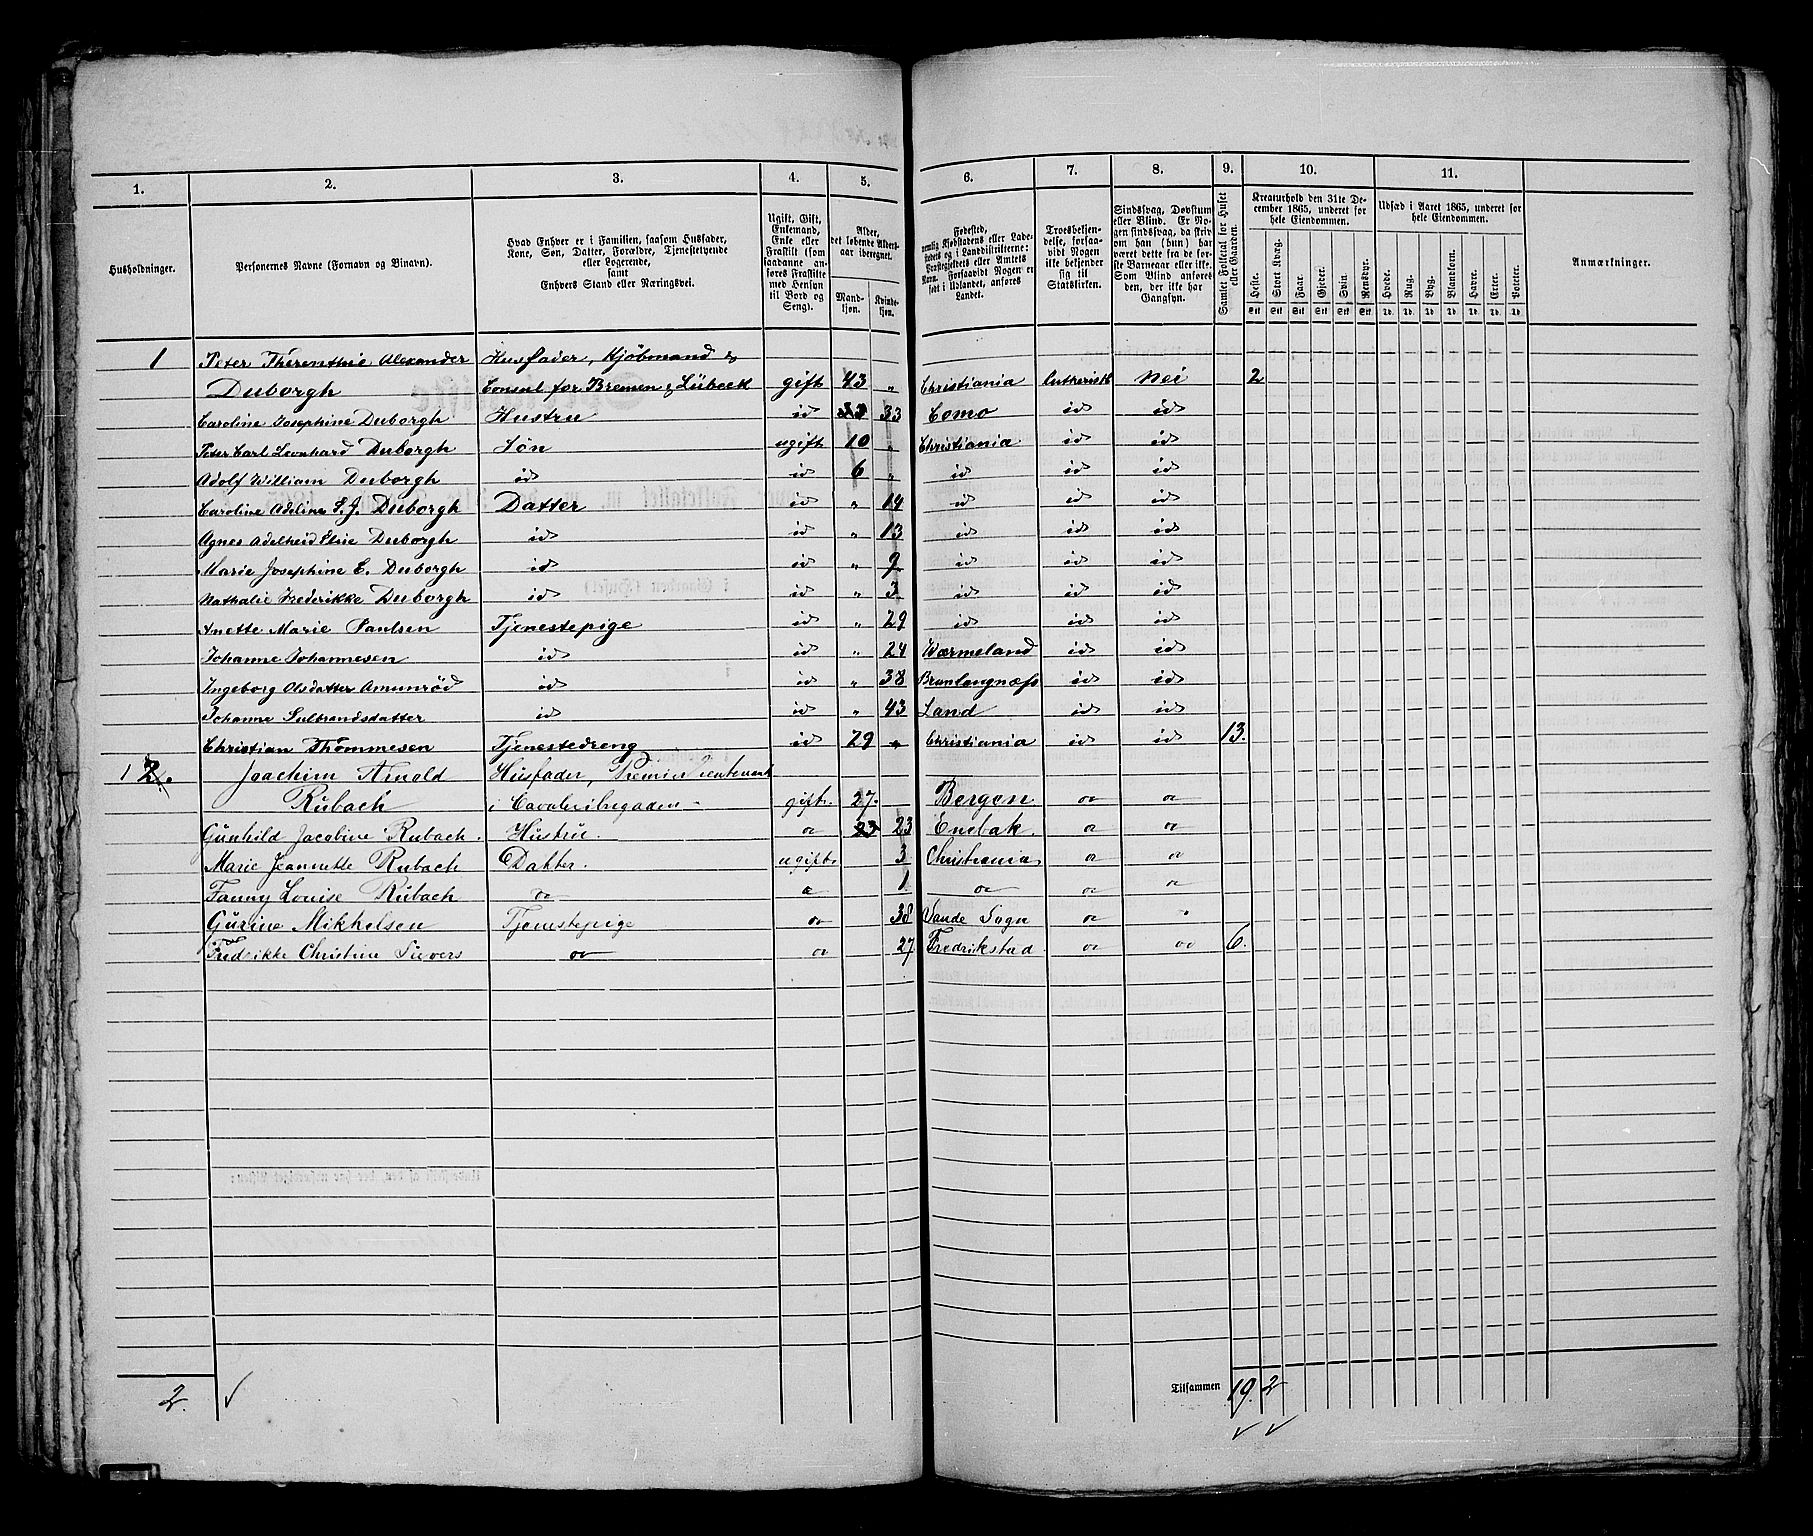 1. 2. 3. 4. 5. 6. 7. 8. 9. 10. 11.
Husholdninger.
Personernes Navne (Fornavn og Binavn).
Hvad Enhver er i Familien, saasom Husfader,
Kone, Søn, Datter, Forældre, Tjenestetyende
eller Logerende,
samt
Enhvers Stand eller Næringsvei.
Ugift, Gift,
Enkemand,
Enke eller
Fraskilt (som
saadanne anføres Fraskilte
med Hensyn
til Bord og
Seng).
Alder,
det løbende Alders-
aar iberegnet.
Mand-
kjøn.
Kvinde-
kjøn.
Fødested,
nemlig Kjøbstadens eller Lade-
stedets og i Landdistrikterne:
Præstegjeldets eller Amtets
Navn. Forsaavidt Nogen er
født i Udlandet, anføres
Landet.
Troesbekjen-
delse, forsaa-
vidt Nogen
ikke bekjender
sig til
Statskirken.
Sindssvag, Døvstum
eller Blind. Er No-
gen sindssvag, da skriv
om han (hun) har
været dette fra de før-
ste Barneaar eller ikke.
Som Blind anføres
den, der ikke har
Gangsyn.
Samlet Folketal for Huset
eller Gaarden.
Kreaturhold den 31te De-
cember 1865, underet for
hele Eiendommen.
Heste. Stort Kvæg. Faar. Gjeder. Svin. Rensdyr.
Stk Stk Stk Stk Stk Stk
Udsæd i Aaret 1865, underet for
hele Eiendommen.
Hvede. Rug. Byg. Blandkorn. Havre. Erter. Poteter.
Td. Td. Td. Td. Td. Td. Td.
Anmærkninger.
1 Peter Therenthie Alexander Husfader, Kjøbmand &
Duborgh Consul for Bremen & Lübeck gift 43 " Christiania luthersk Nei 2
Caroline Josephine Duborgh Hustru id 33 33 Como id id
Peter Carl Leonhard Duborgh Søn ugift 10 " Christiania id id
Adolf William Duborgh id id 6 " id id id
Caroline Adeline S. J. Duborgh Datter id " 14 id id id
Agnes Adelheid Elise Duborgh id id " 13 id id id
Marie Josephine E. Duborgh id id " 9 id id id
Nathalie Frederikke Duborgh id id " 3 id id id
Anette Marie Paulsen Tjenestepige id " 29 id id id
Johanne Johannesen id id " 24 Wærmeland id id
Ingeborg Olsdatter Amunrød id id " 38 Brunlangnæss id id
Johanne Gulbrandsdatter id id " 43 Land id id
Christian Thommesen Tjenestedreng id 29 " Christiania id id 13.
1 2. Joachim Arnold Husfader, Premierlieutenant
Rubach i Cavaleribrigaden gift. 27. Bergen do do
Gunhild Jacobine Rubach. Hustru. do 23 23 Enebak do do
Marie Jeannette Rubach Datter. ugift. 3 Christiania do do
Fanny Louise Rubach do do 1 do do do
Gurine Mikkelsen Tjenestepige do 38 Sande Sogn do "
Fredrikke Christine Sievers do do 27 Fredrikstad. do do 6.
2. Tilsammen 19. 2